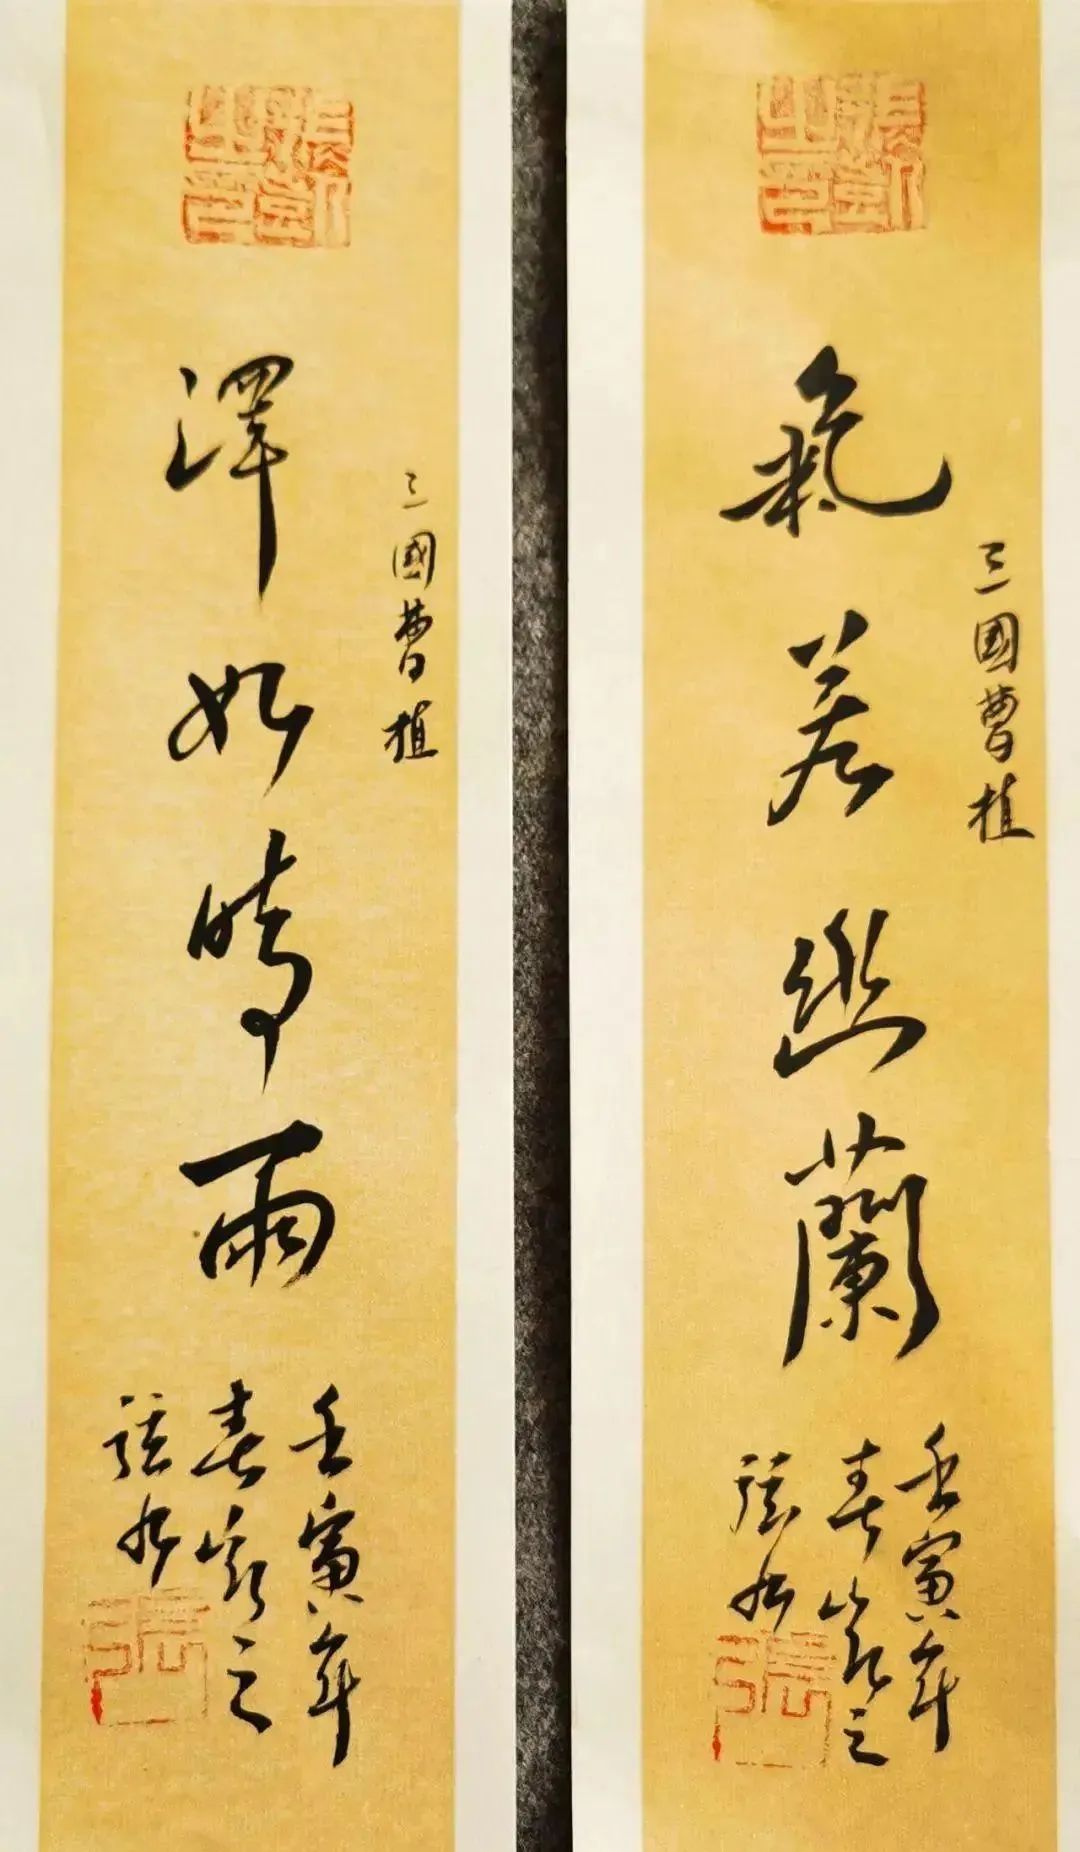 氣若幽蘭
三國曹植
壬寅年
春崴之
張
澤如時雨
三國曹植
壬寅年
春崴之
張